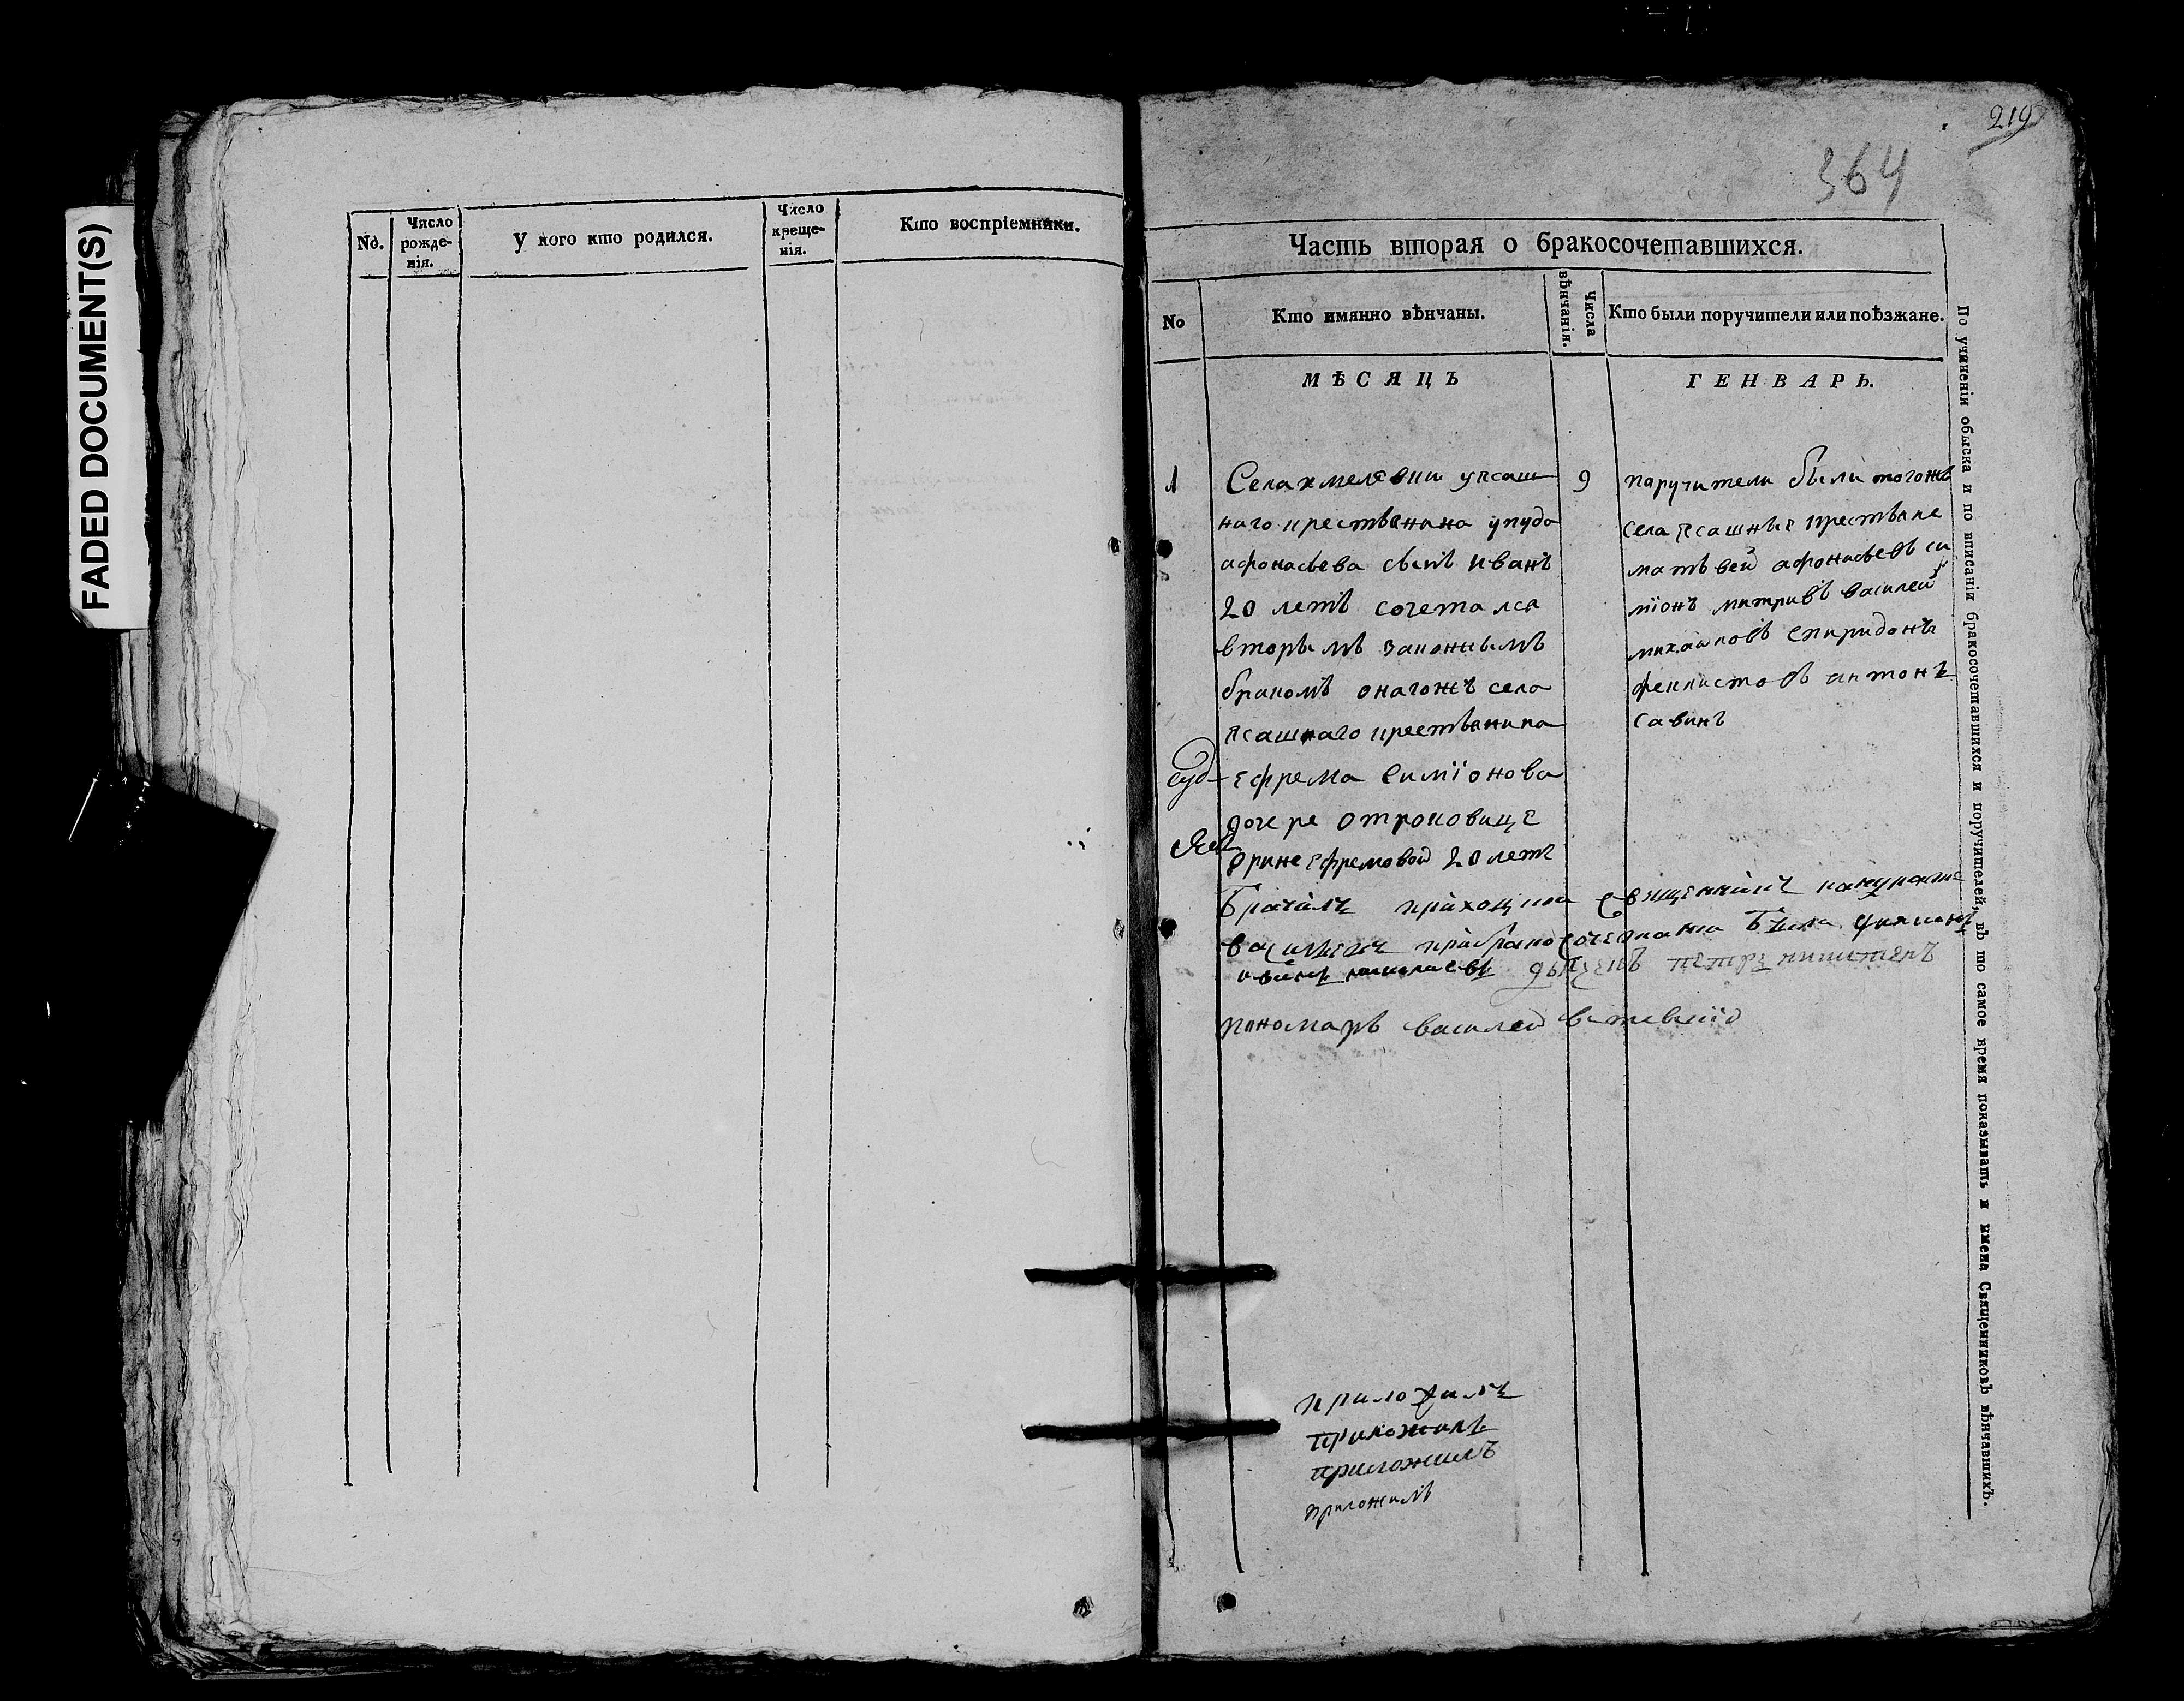 FADED DOCUMENT(S)
No.
Число рожде-нія.
У кого кто родился.
Число креще-нія.
Кто воспріемники.
219
364
Часть вторая о бракосочетавшихся.
No
Кто имянно вѣнчаны.
Числа вѣнчанія.
Кто были поручители или поѣзжане.
МѢСЯЦЪ
ГЕНВАРЬ.
1
Села
наго крестьянина
афонасьева сынъ иванъ
20 летъ сочетался
вторымъ законнымъ
бракомъ онагожъ села
ясашнаго крестьянина
ефрема симіонова
дочере отроковице
ефремовой 20 летъ
9
паручители были тогожъ
села ясашные крестьяне
матвей афонасьевъ си
міонъ митривъ василей
михаиловъ спиридонъ
феклистовъ антонъ
савинъ
священникъ
васильевъ при бракосочетании были
петръ никитинъ
пономарь василей
приложилъ
приложилъ
приложилъ
приложилъ
По учиненіи обыска и по вписаніи бракосочетавшихся и поручителей, въ то самое время показывать и имена Священниковъ вѣнчавшихъ.